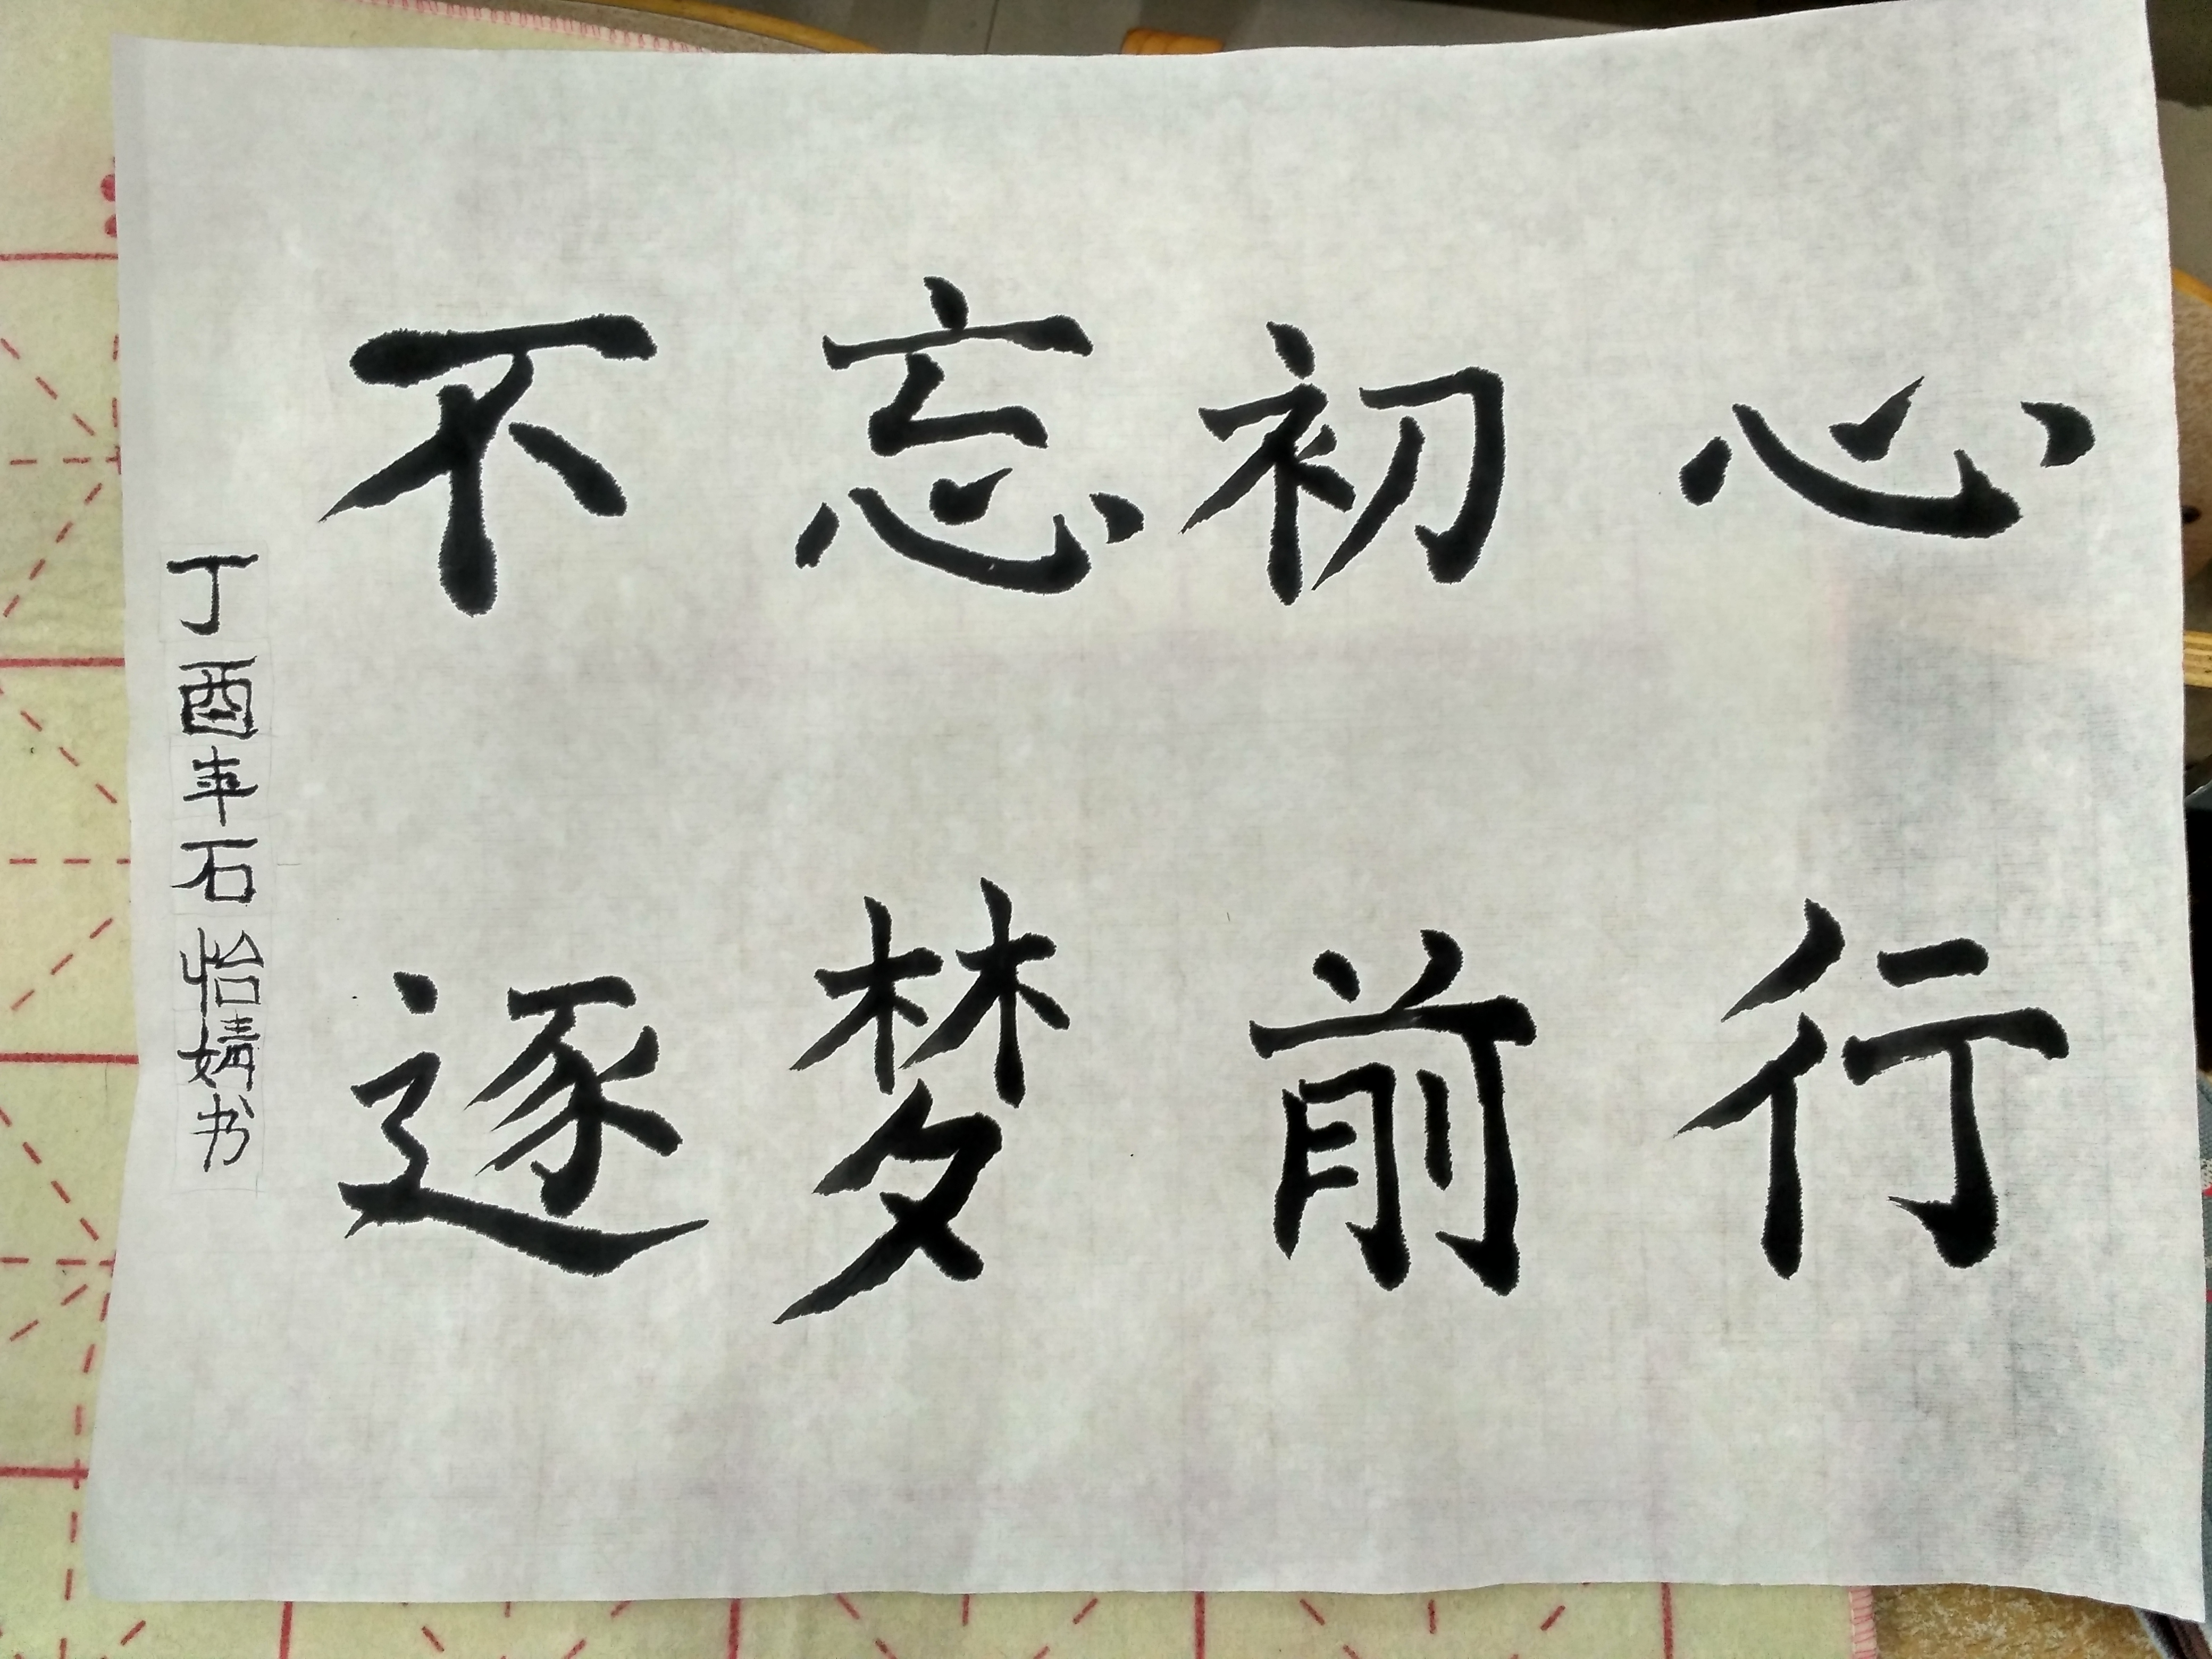 不忘初心
逐梦前行
丁酉年石怡婧书